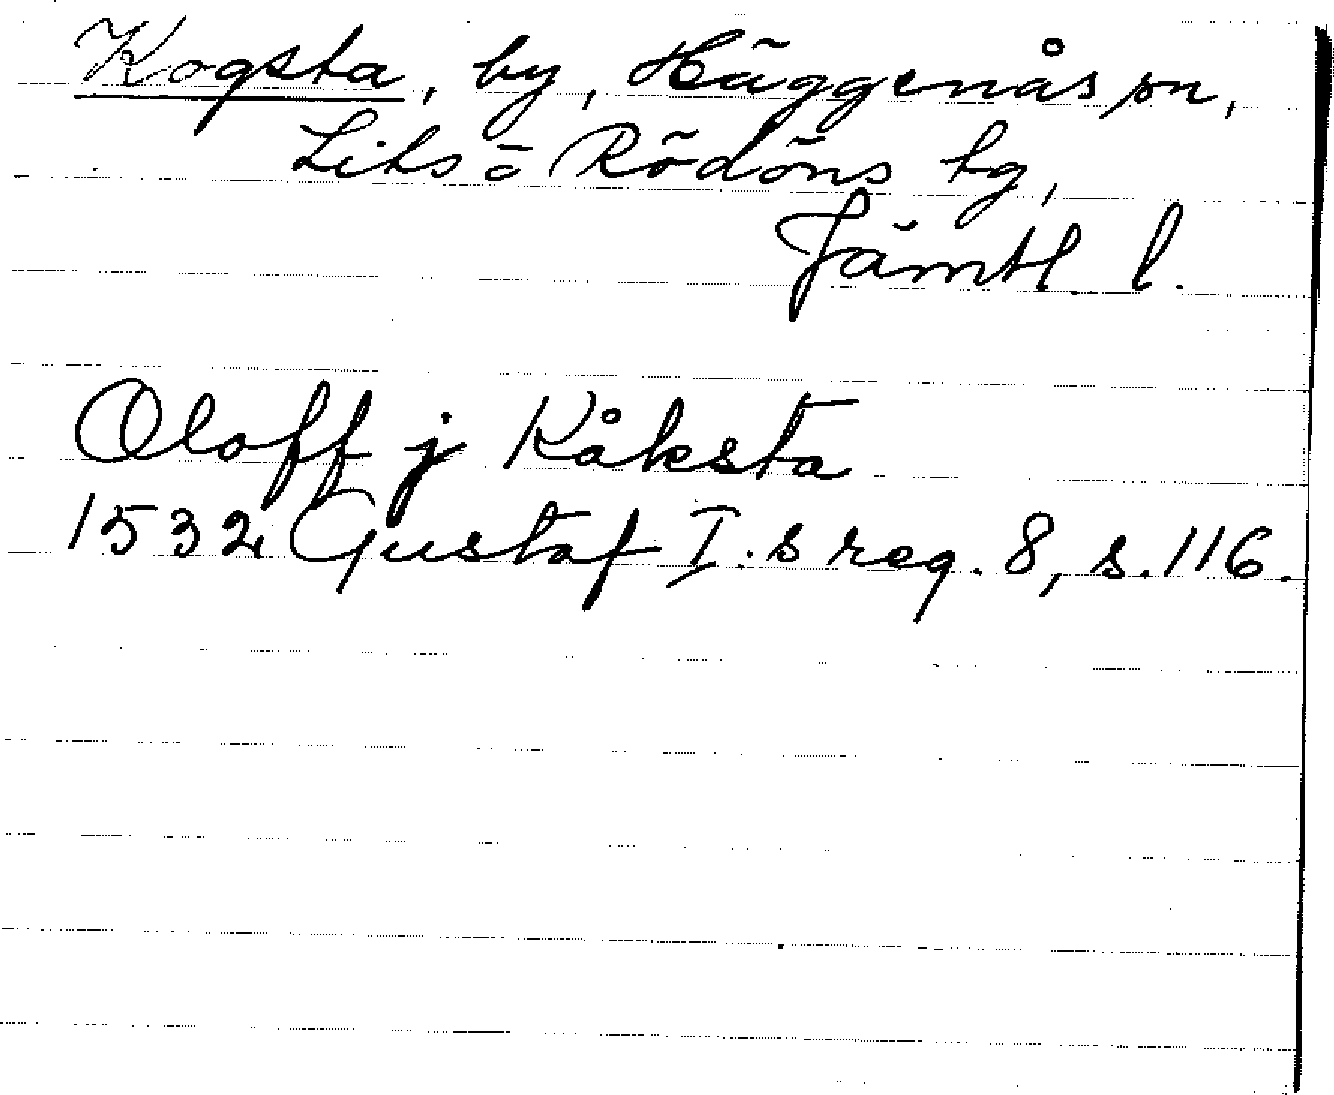 Kogsta, by, Häggenås sn,
Lits o Rödöns tg,
Jämtl l.
Oloff j Kåksta
1532 Gustaf I:s reg. 8, s. 116.